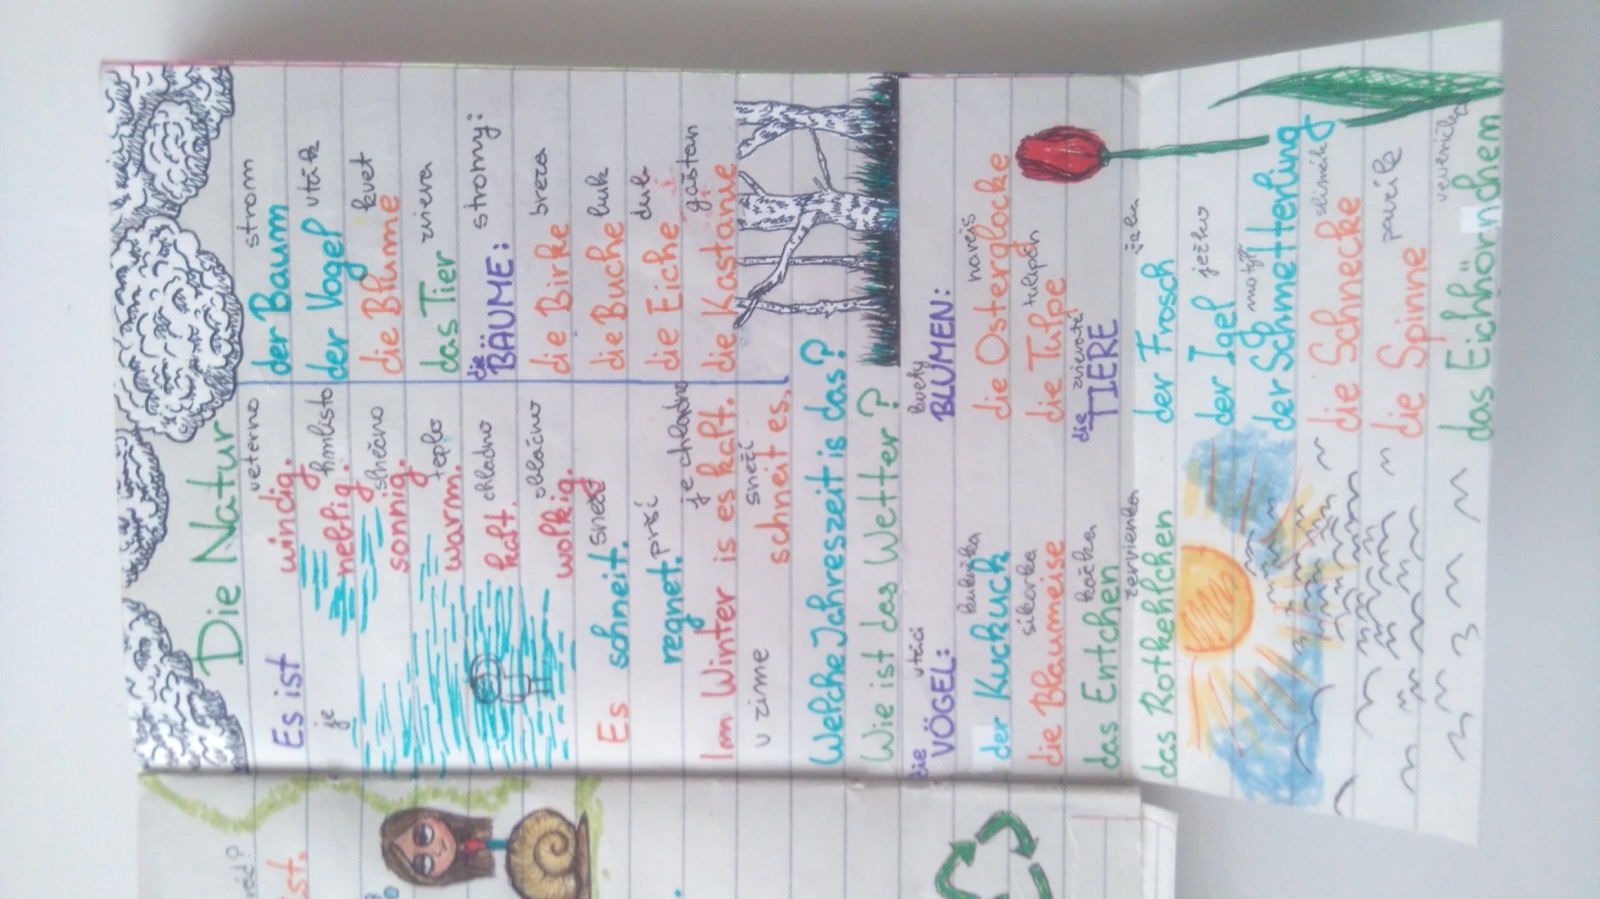 Die Natur
veterno
Es ist windig.
je
hmlisto
neblig.
slnečno
sonnig.
teplo
warm.
chladno
kalt.
oblačno
wolkig.
sneží
Es schneit.
prší
regnet.
je chladno
Im Winter is es kalt.
v zime sneží
schneit es.
strom
der Baum
vták
der Vogel
kvet
die Blume
zviera
das Tier
stromy:
die BÄUME:
breza
die Birke
buk
die Buche
dub
die Eiche
gaštan
die Kastanie
Welche Jahreszeit is das?
Wie ist das Wetter?
vtáci
die VÖGEL:
kukučka
der Kuckuck
sikorka
die Blaumeise
kačka
das Entchen
červienka
das Rotkehlchen
kvety
BLUMEN:
narcis
die Osterglocke
tulipán
die Tulpe
zvieratá
die TIERE
žaba
der Frosch
ježko
der Igel
motýľ
der Schmetterling
slimák
die Schnecke
pavúk
die Spinne
veverička
das Eichhörnchem